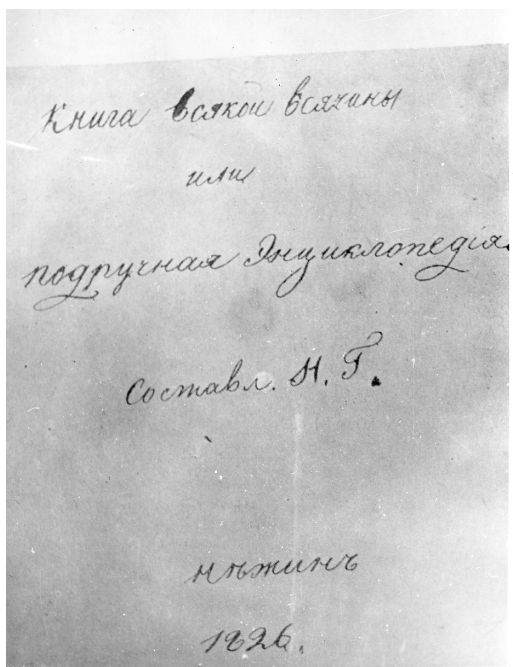 Книга всякой всячины
или
подручная Энциклопедія.
Составл. Н. Г.
Нѣжинъ
1826.